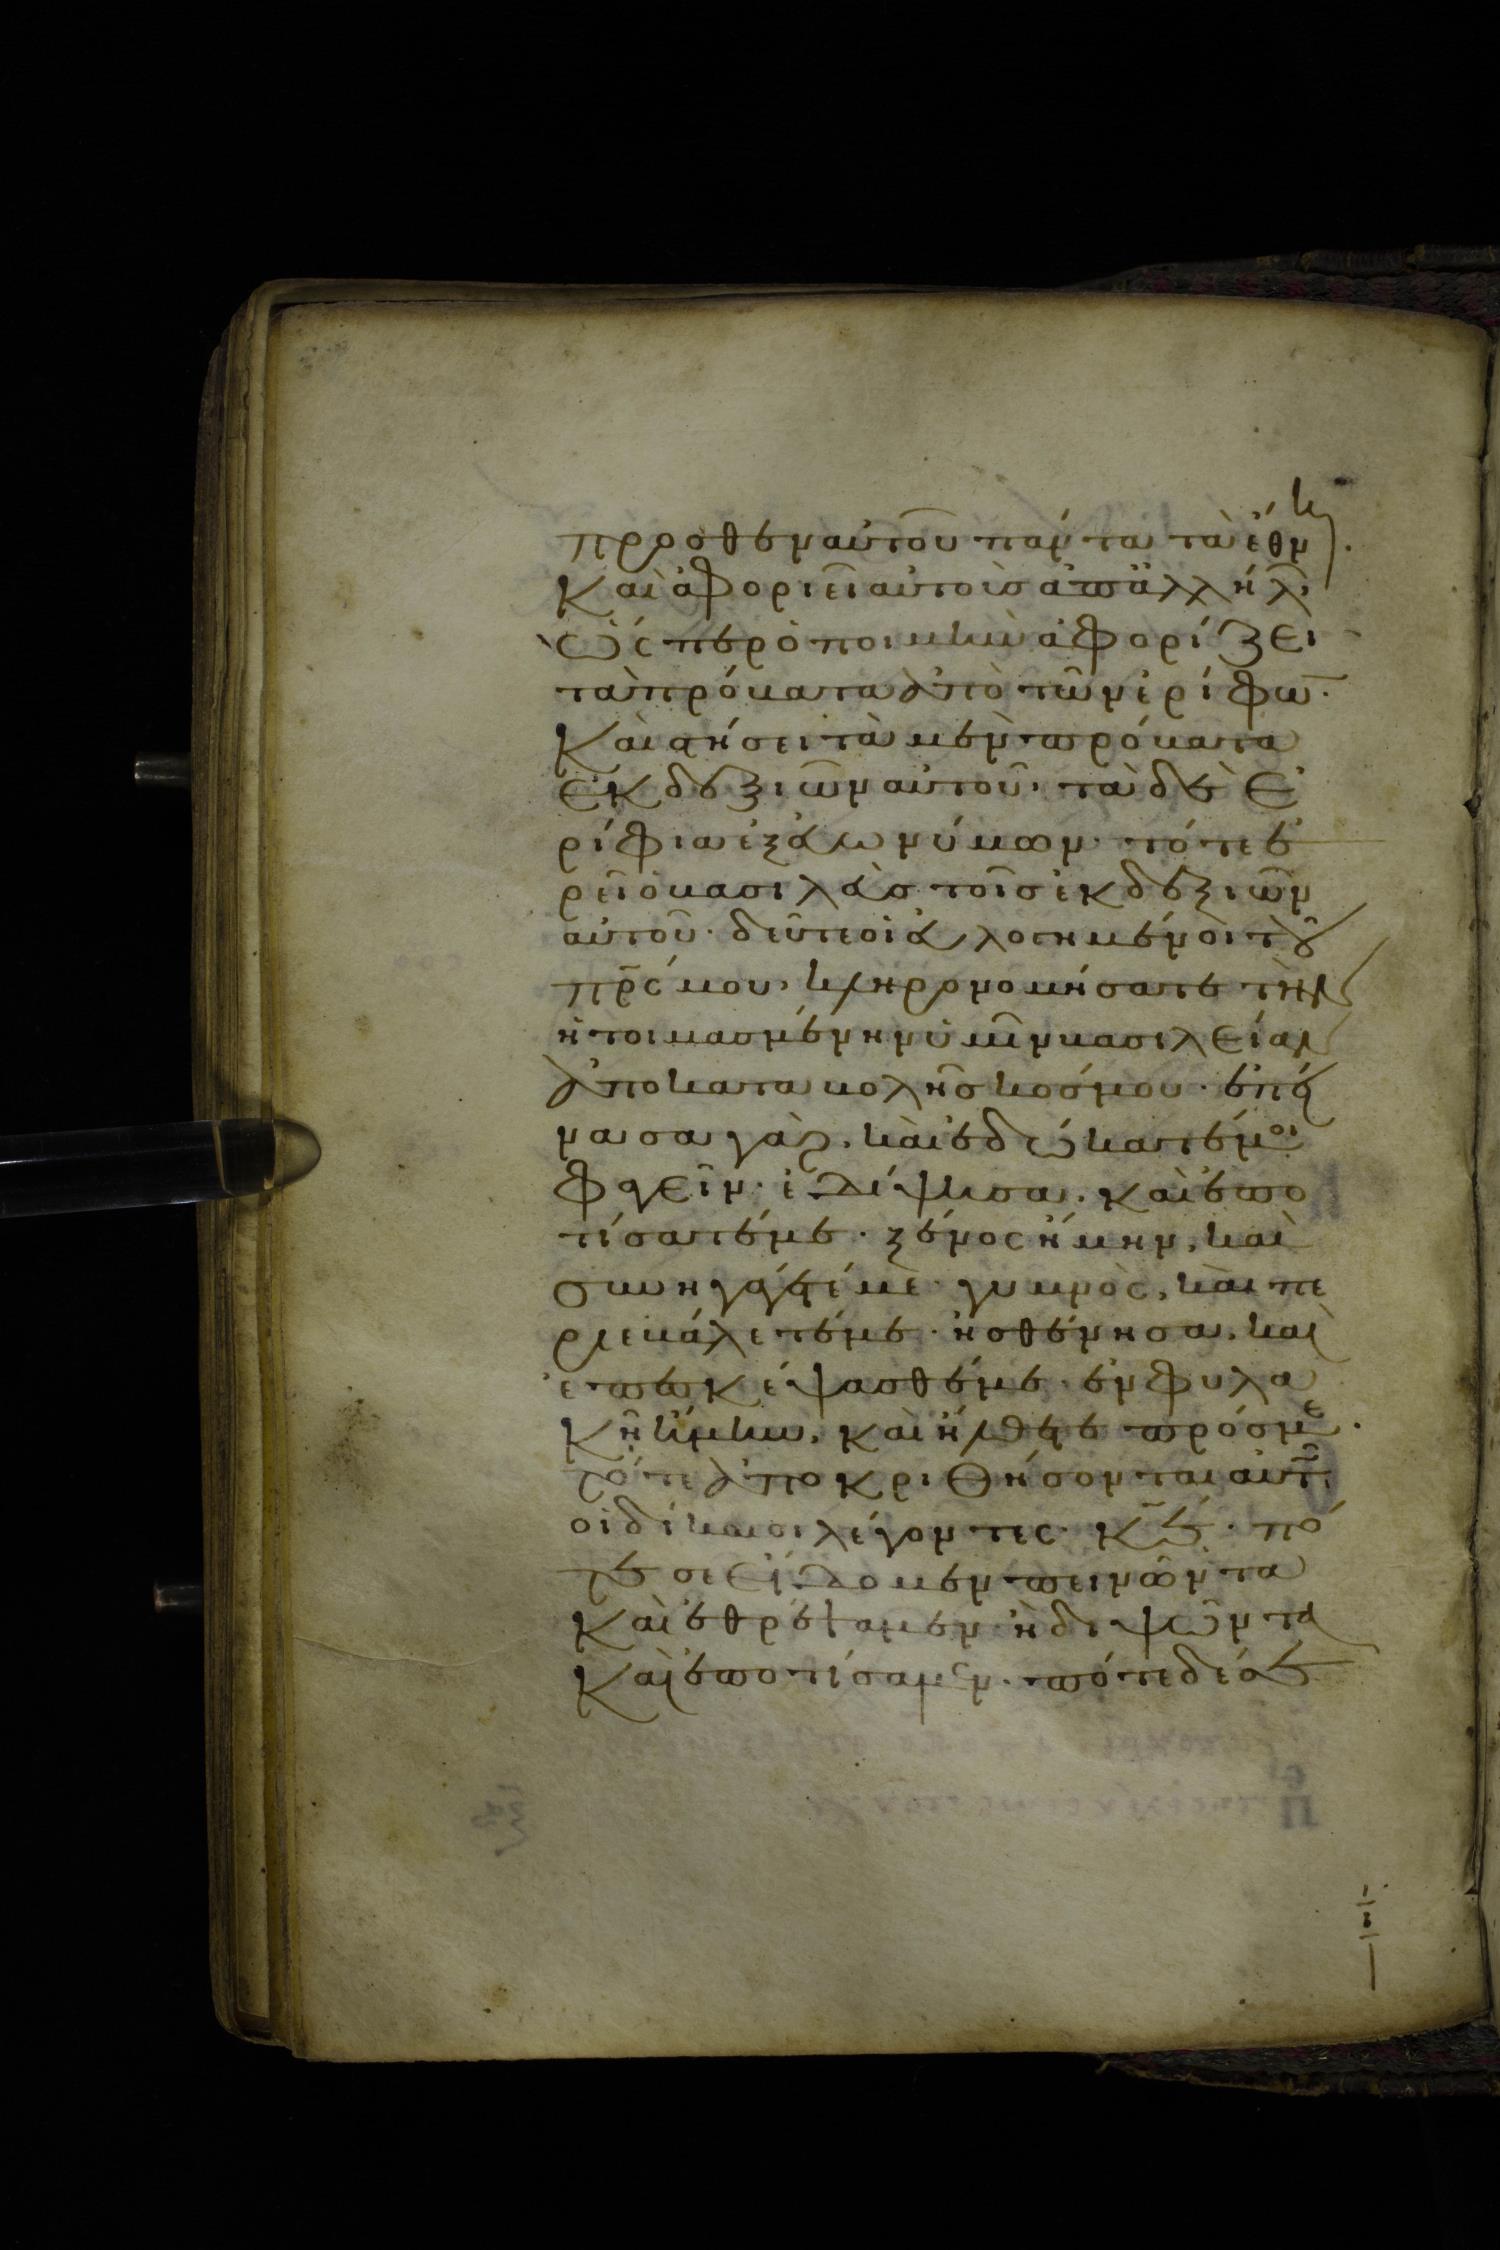 προσθεν αὐτοῦ πάντα τὰ ἔθνη.
Καὶ ἀφοριεῖ αὐτοὺς ἀπ' ἀλλήλ
ὥσπερ ὁ ποιμὴν ἀφορίζει
τὰ πρόβατα ἀπὸ τῶν ἐρίφω.
Καὶ στήσει τὰ μὲν πρόβατα
ἐκ δεξιῶν αὐτοῦ, τὰ δὲ ἐ
ρίφια ἐξ εὐωνύμων. τότε ἐ
ρεῖ ὁ βασιλεὺς τοῖς ἐκ δεξιῶν
αὐτοῦ. δεῦτε οἱ εὐλογημένοι τοῦ
πρς μου, κληρονομήσατε τὴν
ἡτοιμασμένην ὑμῖν βασιλείαν
ἀπὸ καταβολῆς κόσμου. ἐπεί
νασα γὰρ, καὶ ἐδώκατέ μοι
φαγεῖν. ἐδίψησα, καὶ ἐπο
τίσατέ με. ξένος ἤμην, καὶ
συνηγάγετέ με. γυμνὸς, καὶ πε
ριεβάλετέ με. ἠσθένησα, καὶ
ἐπεσκέψασθέ με. ἐν φυλα
κῇ ἤμην, καὶ ἤλθετε πρός με.
τότε ἀποκριθήσονται αὐτῶ
οἱ δίκαιοι λέγοντες. κε. πό
τε σε εἴδομεν πεινῶντα
καὶ ἐθρέψαμεν. ἢ διψῶντα
καὶ ἐποτίσαμεν. πότε δέ σε